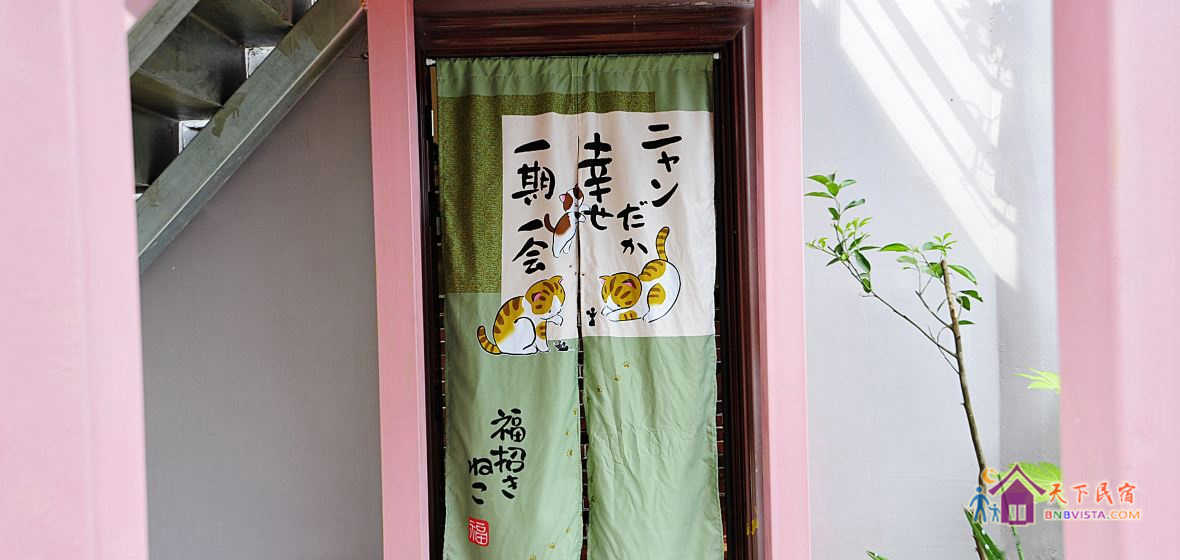 ニャン
だか
幸せ
一期一会
福招き
ねこ
福
天下民宿
BNBVISTA.COM